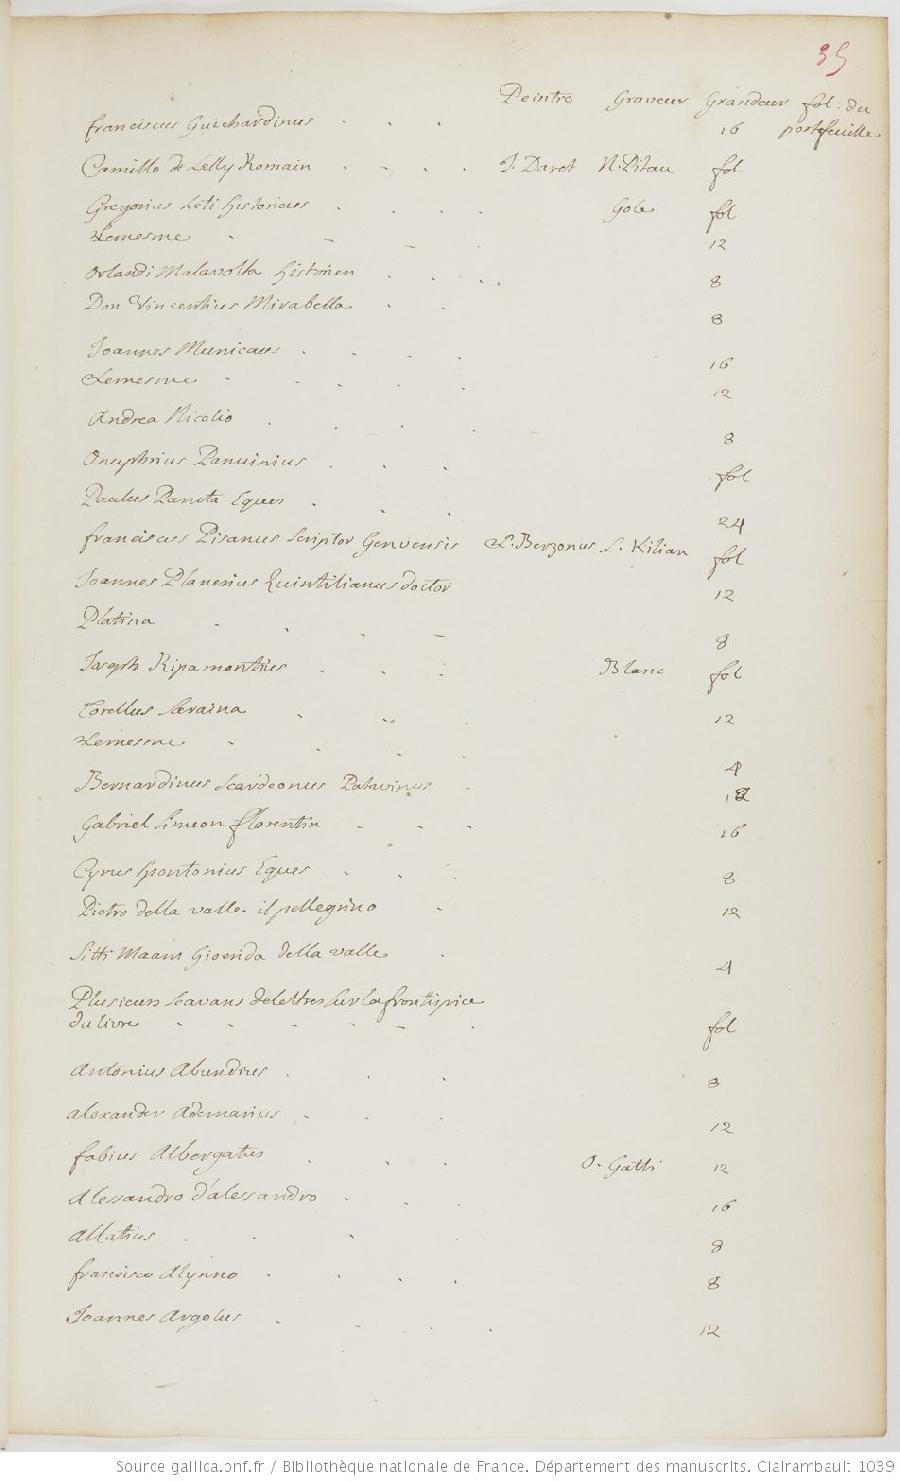 35
Peintre Graveur Grandeur fol. du portefeuille
franciscus Guichardinus 16
Camillo de Lelly Romain J. Daret N. Pitau fol
Gregorius Leti historicus Gole fol
Lemesme 12
Orlandi Malavolta historien 8
Don Vincentius Mirabella 8
Joannes Municaus 16
Lemesme 12
Andrea Nicolio 8
Onuphrius Panuinius fol
Paulus Paruta Eques 24
franciscus Pisanus Scriptor Genuensis L. Berzonus L. Kilian fol
Joannes Planerius Quintilianus doctor 12
Platina 8
Joseph Ripamontius Blanc fol
Torellus Saraina 12
Lemesme 4
Bernardinus Scardeonus Patavinus
Gabriel Simeon florentin 16
Cyrus Spontonius Eques 8
Pietro della valle il pellegrino 12
Sitti Maani Gioerida della valle 4
Plusieurs Scavans de lettres sur le frontispice
du livre fol
Antonius Abundius 8
Alexander Ademarius 12
fabius Albergatus O. Gatti 12
Alessandro d'alessandro 16
Allatius 8
francisco Alynno 8
Joannes Argolus 12
Source gallica.bnf.fr / Bibliothèque nationale de France. Département des manuscrits. Clairambault 1039